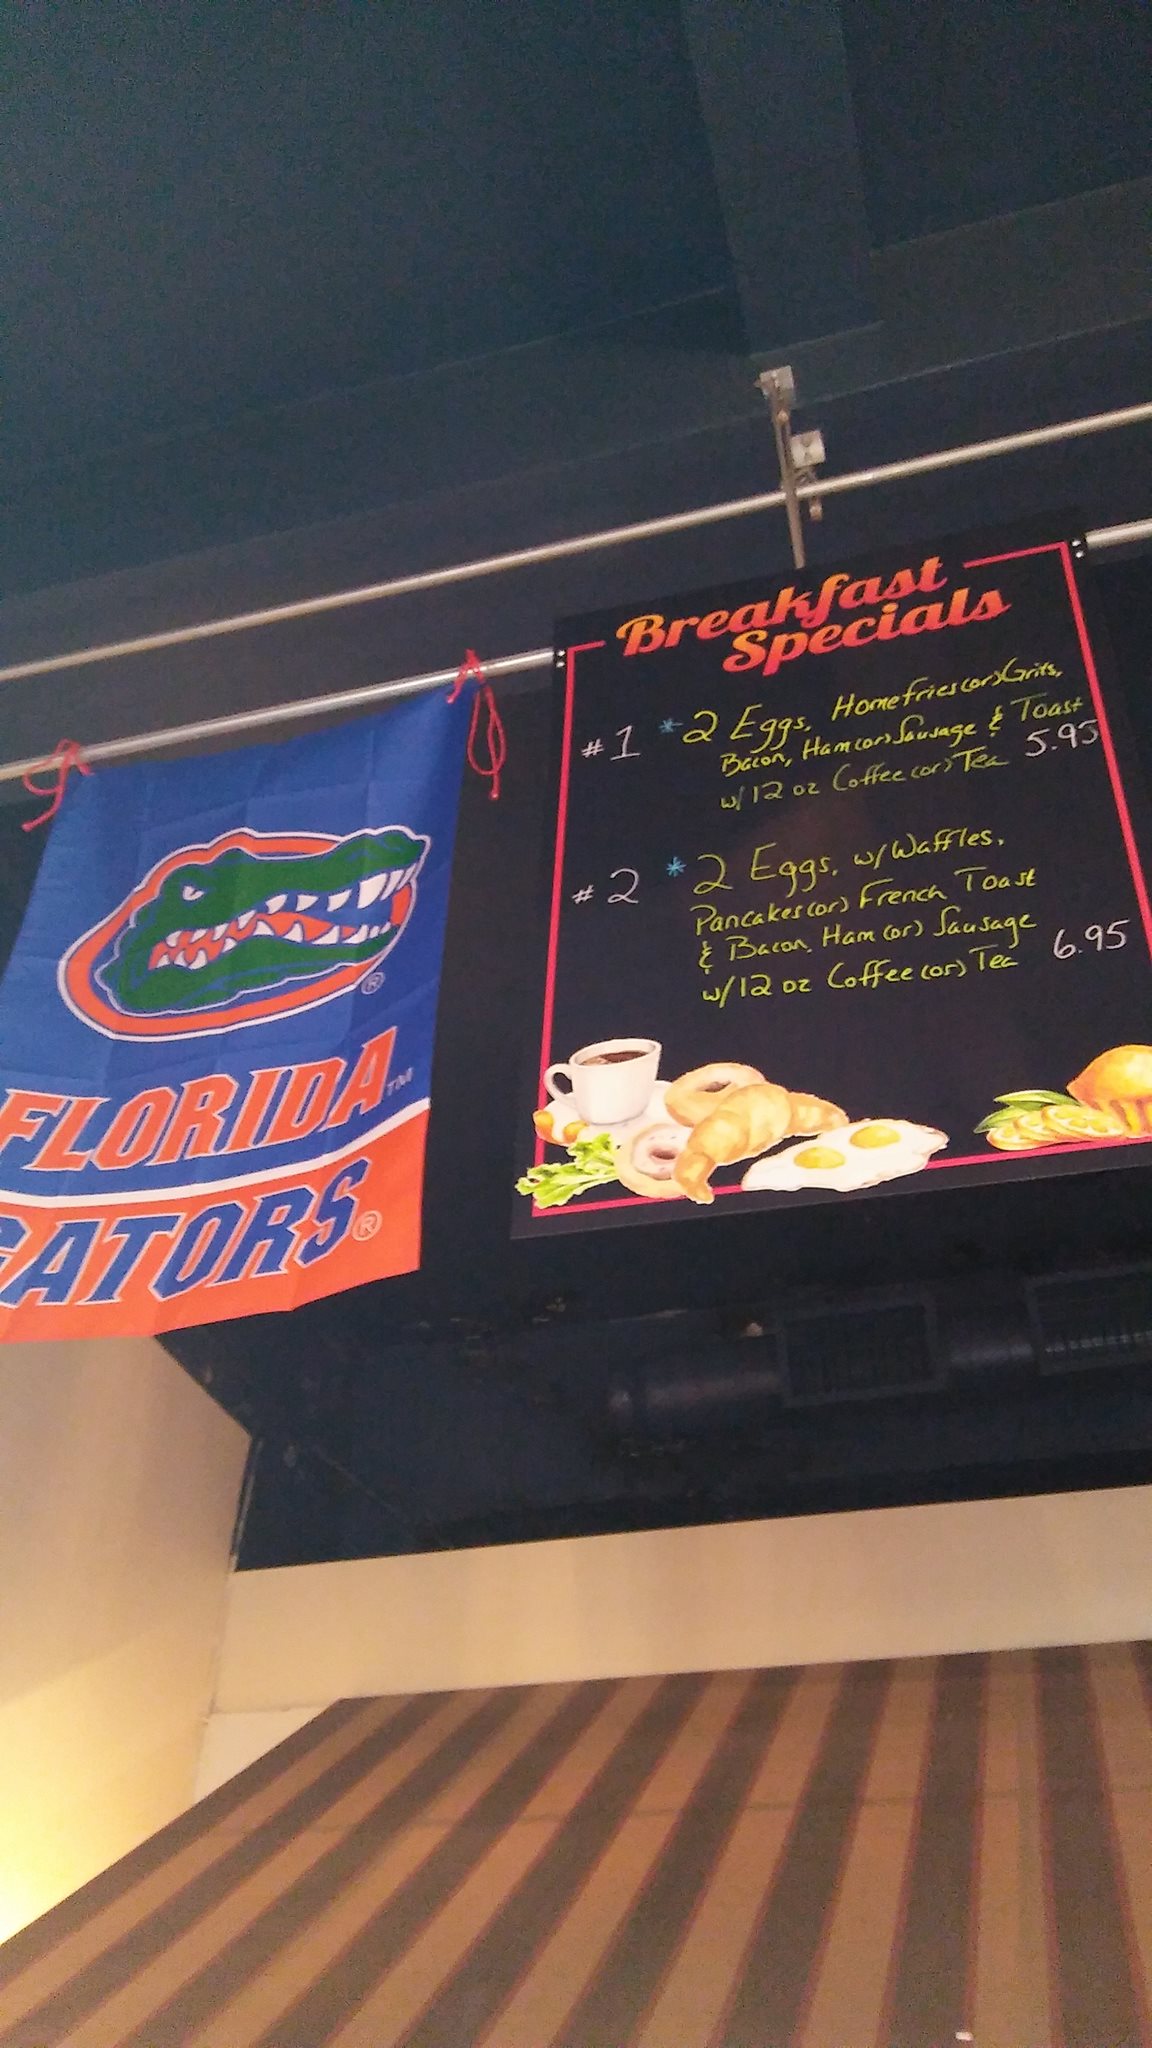 Breakfast
Specials
#1 *2 Eggs, Homefries(or)Grits,
Bacon, Ham(or)Sausage & Toast
w/12 oz Coffee(or)Tea 5.95
#2 *2 Eggs, w/Waffles,
Pancakes(or)French Toast
& Bacon, Ham(or)Sausage
w/12 oz Coffee(or)Tea 6.95
®
FLORIDA™
GATORS®